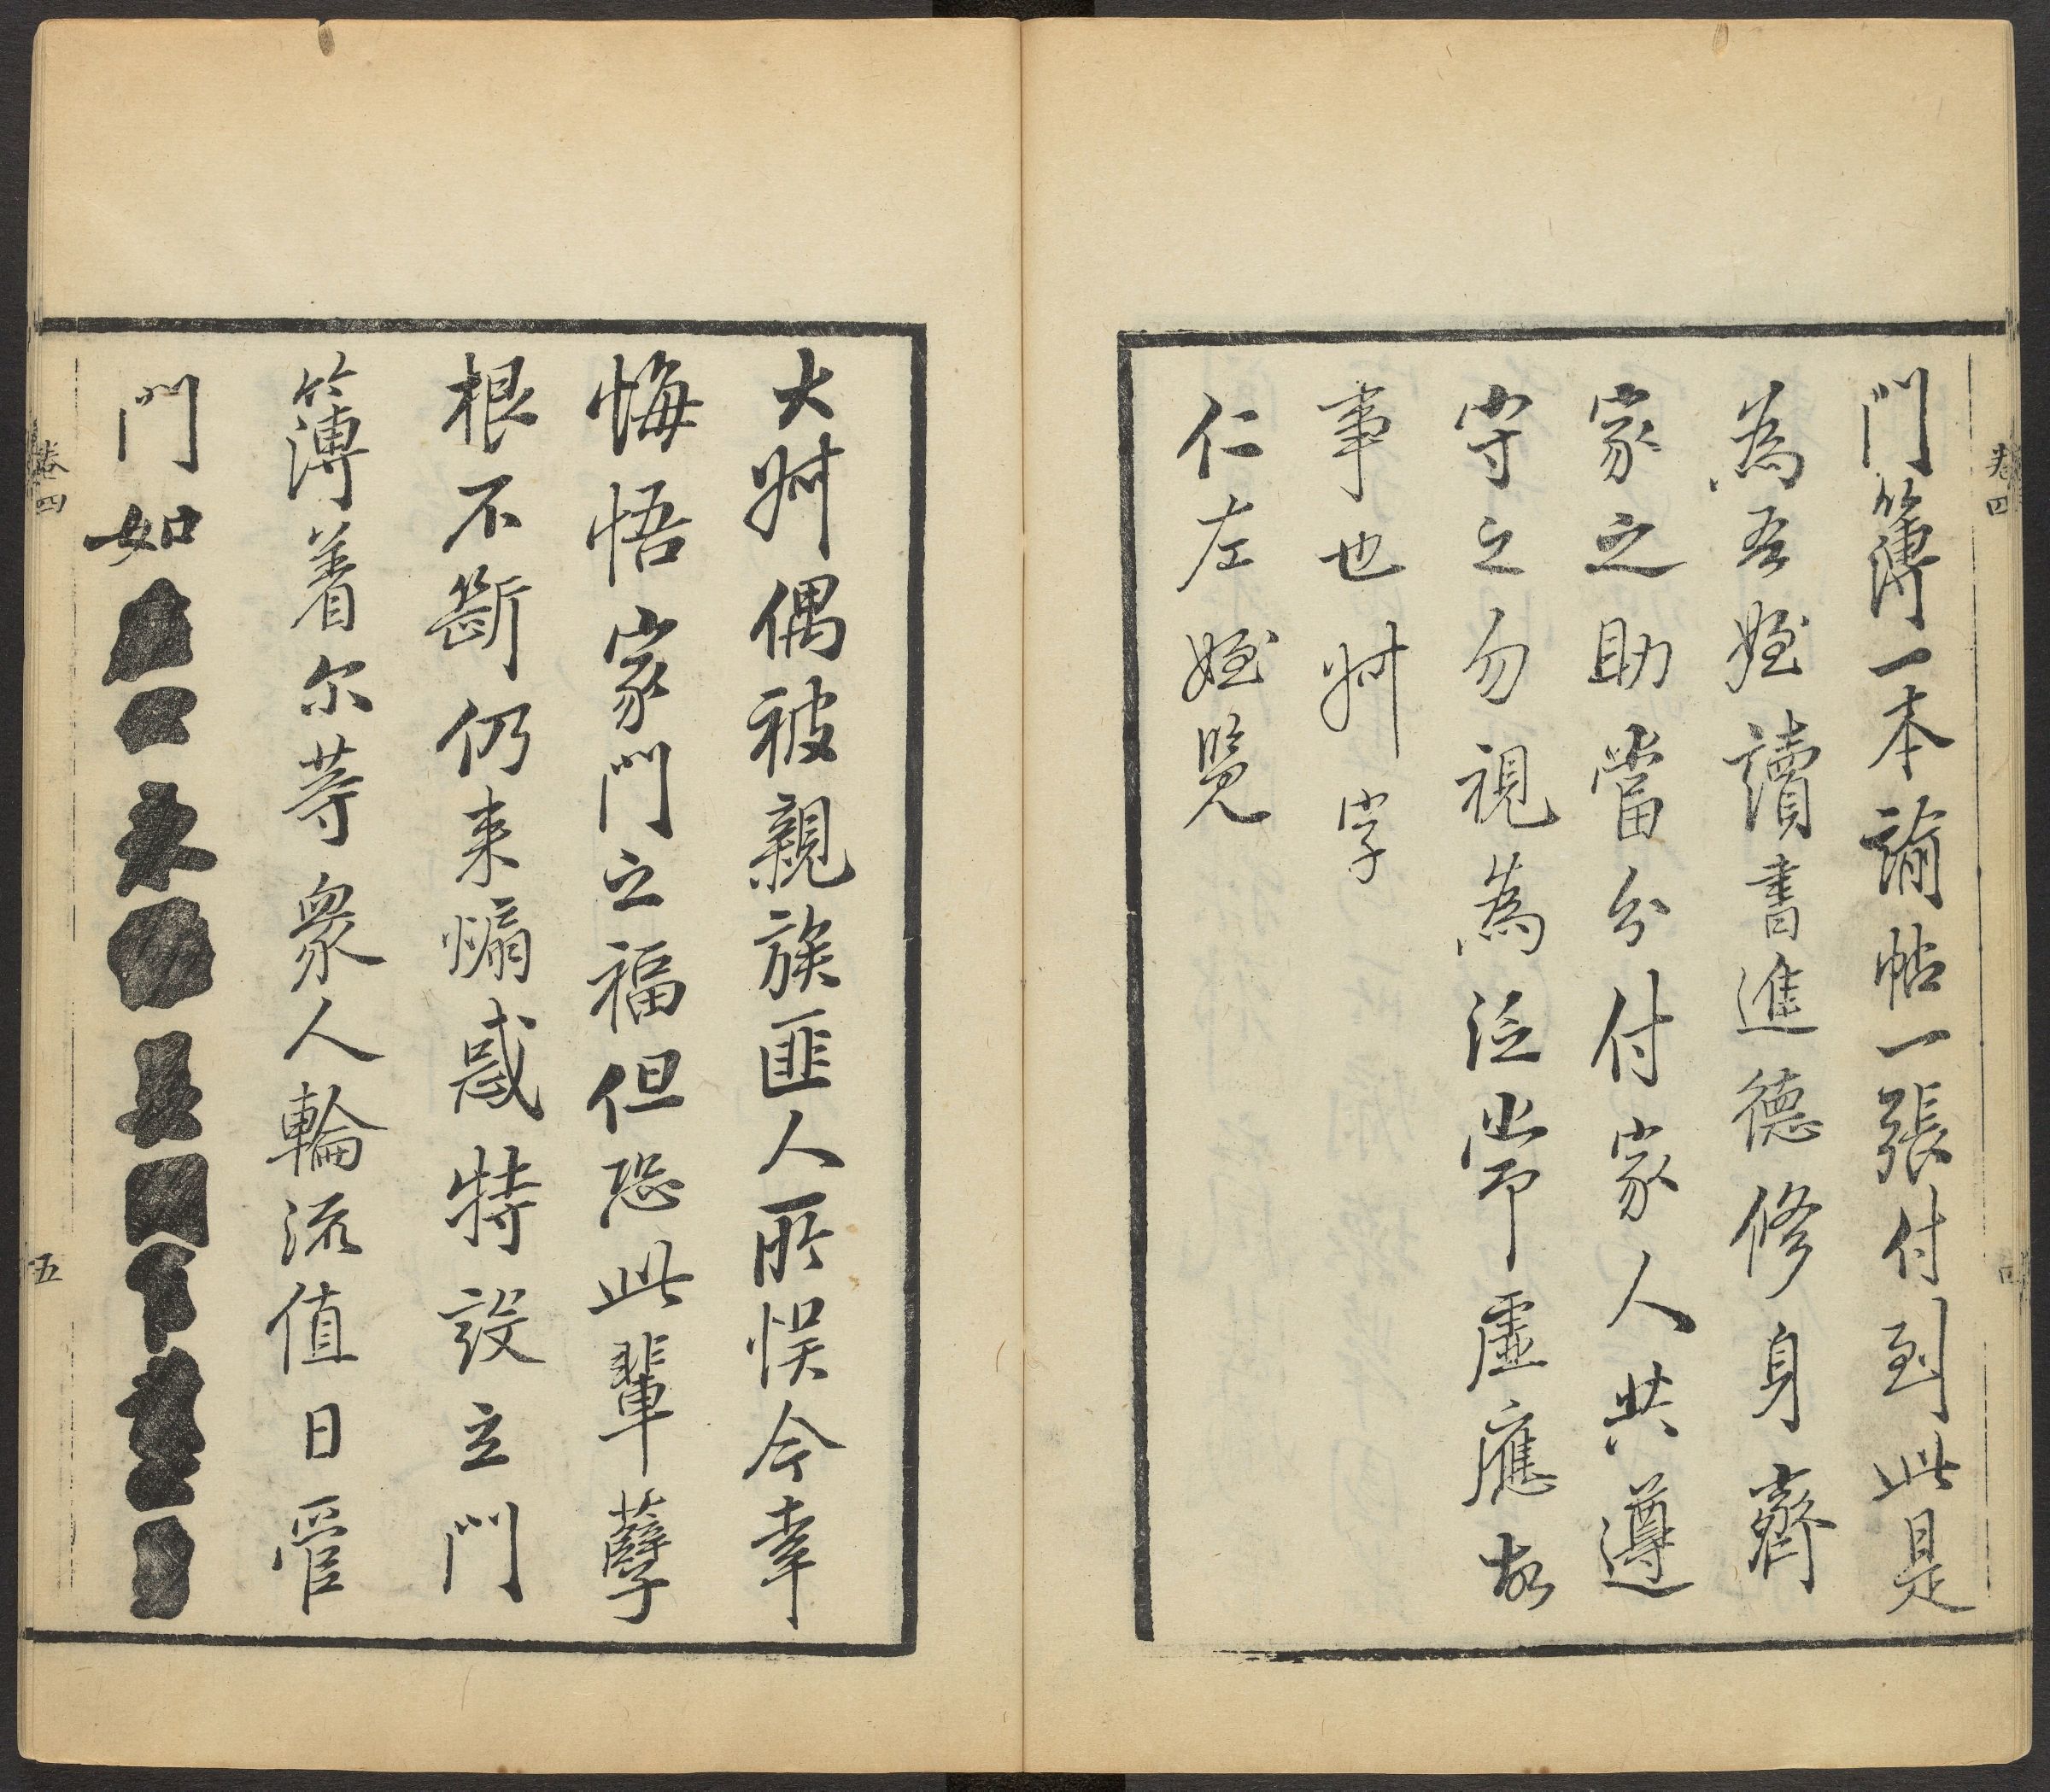 卷四
門簿一本諭帖一張付到此是
為吾姪讀書進德修身齊
家之助當分付家人共遵
守之勿視為泛常虛應故
事也叔字
仁左姪覽
大叔偶被親族匪人所悞今幸
悔悟家門之福但恐此輩孽
根不斷仍来煽惑特設立門
簿着尔等衆人輪流值日管
門如
卷四
五